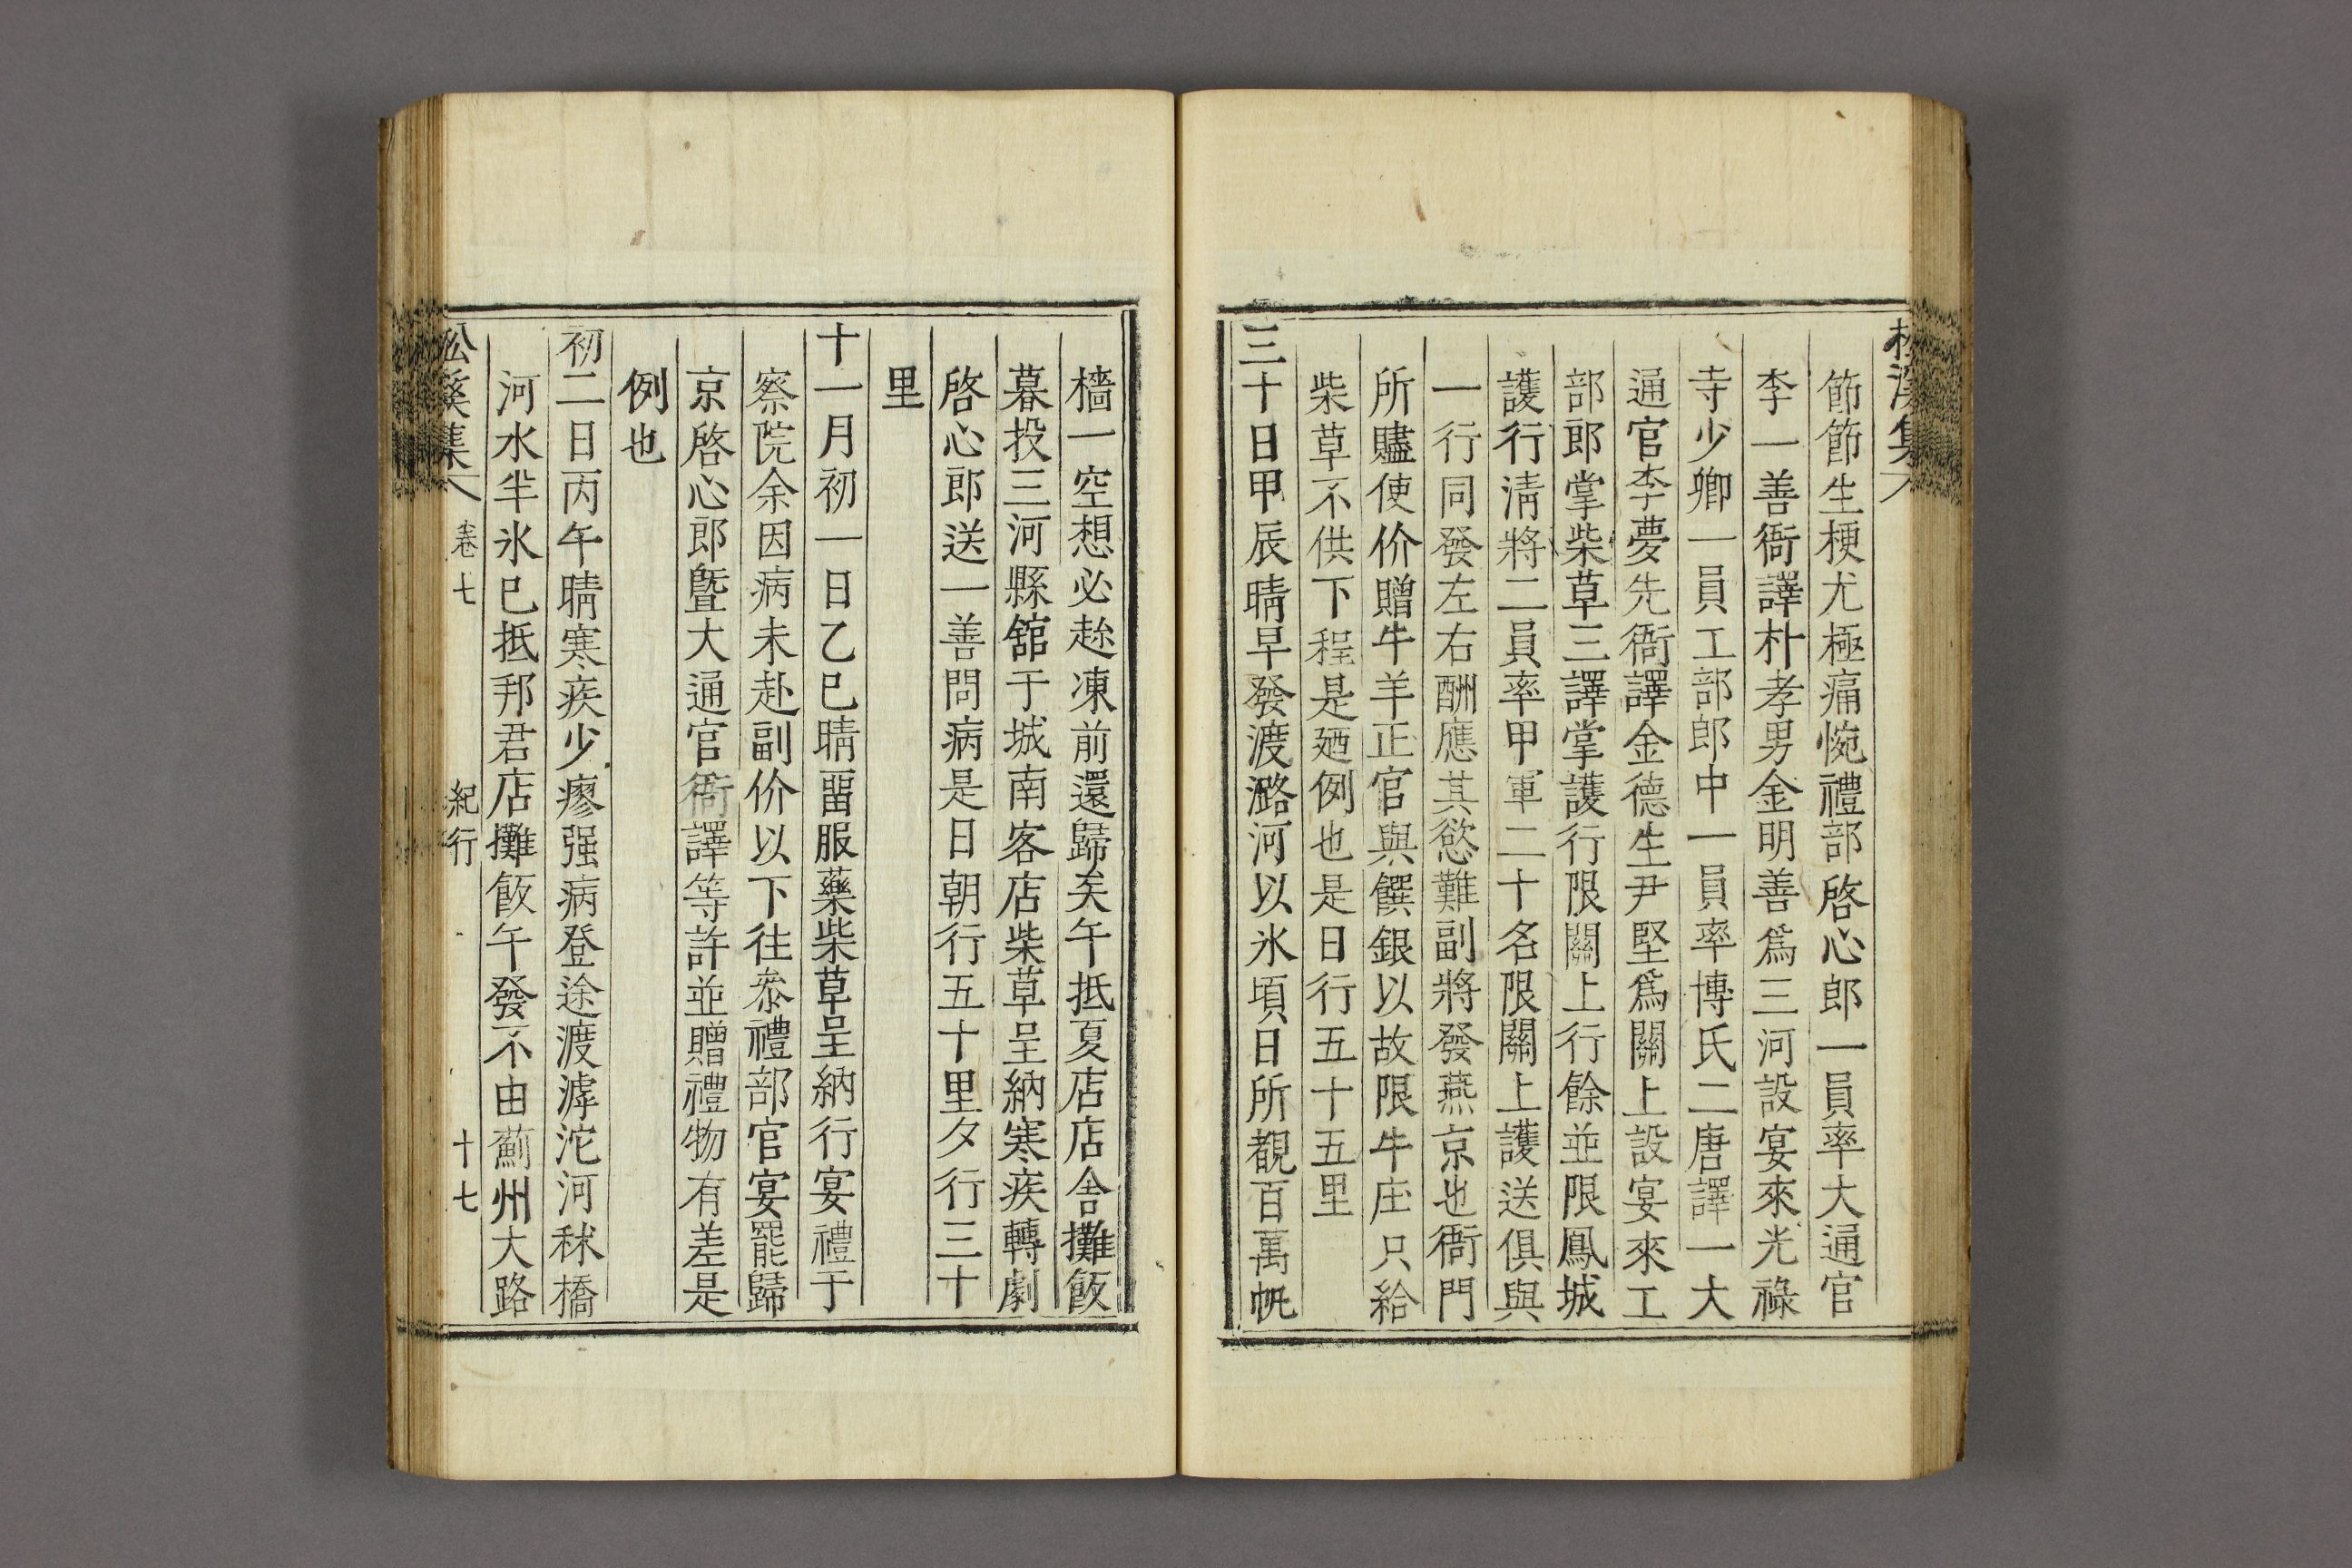 松溪集
節節生梗尤極痛惋禮部啓心郎一員率大通官
李一善衙譯朴孝男金明善爲三河設宴來光祿
寺少卿一員工部郎中一員率博氏二唐譯一大
通官李夢先衙譯金德生尹堅爲關上設宴來工
部郎掌柴草三譯掌護行限關上行餘並限鳳城
護行淸將二員率甲軍二十名限關上護送俱與
一行同發左右酬應其慾難副將發燕京也衙門
所贐使价贈牛羊正官與饌銀以故限牛庄只給
柴草不供下程是廼例也是日行五十五里
三十日甲辰晴早發渡潞河以氷頃日所覩百萬帆
檣一空想必趂凍前還歸矣午抵夏店店舍攤飯
暮投三河縣舘于城南客店柴草呈納寒疾轉劇
啓心郎送一善問病是日朝行五十里夕行三十
里
十一月初一日乙巳晴畱服藥柴草呈納行宴禮于
察院余因病未赴副价以下往叅禮部官宴罷歸
京啓心郎曁大通官衙譯等許並贈禮物有差是
例也
初二日丙午晴寒疾少瘳强病登途渡滹沱河秫橋
河水半氷已抵邦君店攤飯午發不由薊州大路
松溪集 卷七 紀行 十七